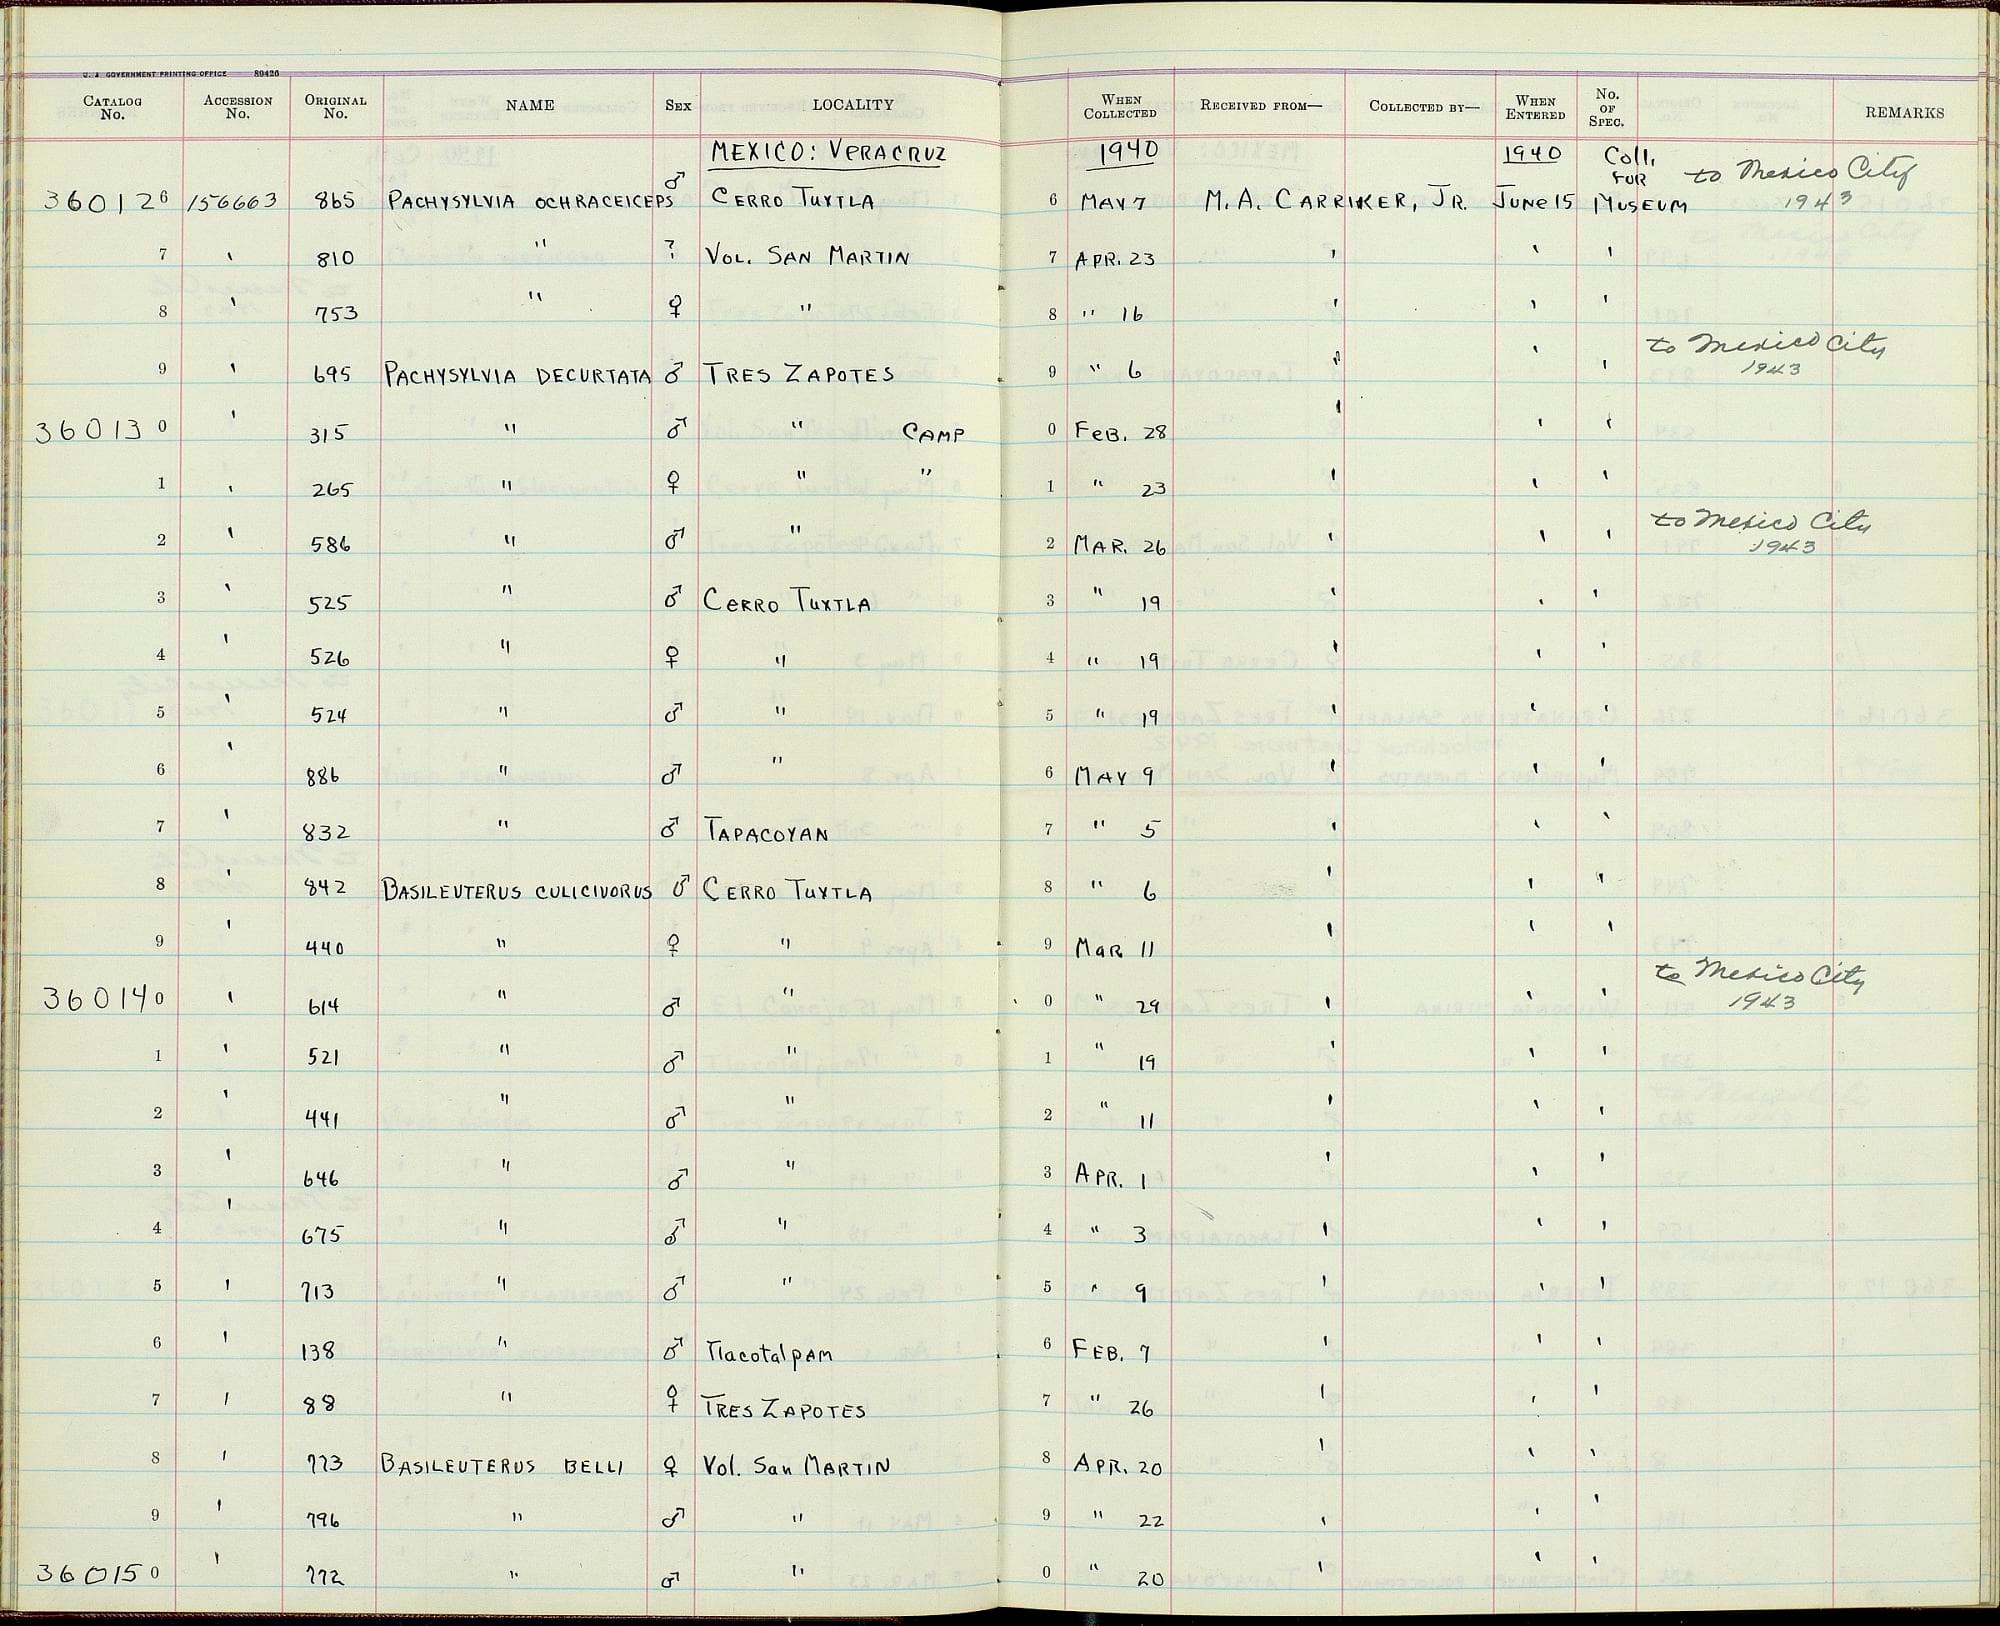 U. S. GOVERNMENT PRINTING OFFICE 89426
CATALOG No. ACCESSION No. ORIGINAL No. NAME SEX LOCALITY WHEN COLLECTED RECEIVED FROM— COLLECTED BY— WHEN ENTERED No. OF SPEC. REMARKS
MEXICO: VERACRUZ 1940 1940 Coll. FUR
360126 156663 865 PACHYSYLVIA OCHRACEICEPS ♂ CERRO TUXTLA 6 MAY 7 M. A. CARRIKER, JR. JUNE 15 MUSEUM to Mexico City 1943
7 ' 810 " ? VOL. SAN MARTIN 7 APR. 23 ' ' '
8 ' 753 " ♀ " 8 " 16 ' ' '
9 ' 695 PACHYSYLVIA DECURTATA ♂ TRES ZAPOTES 9 " 6 ' ' ' to Mexico City 1943
360130 ' 315 " ♂ " CAMP 0 FEB. 28 ' ' '
1 ' 265 " ♀ " " 1 " 23 ' ' '
2 ' 586 " ♂ " 2 MAR. 26 ' ' ' to Mexico City 1943
3 ' 525 " ♂ CERRO TUXTLA 3 " 19 ' ' '
4 ' 526 " ♀ " 4 " 19 ' ' '
5 ' 524 " ♂ " 5 " 19 ' ' '
6 ' 886 " ♂ " 6 MAY 9 ' ' '
7 ' 832 " ♂ TAPACOYAN 7 " 5 ' ' '
8 ' 842 BASILEUTERUS CULICIVORUS ♂ CERRO TUXTLA 8 " 6 ' ' '
9 ' 440 " ♀ " 9 MAR 11 ' ' '
360140 ' 614 " ♂ " 0 " 29 ' ' ' to Mexico City 1943
1 ' 521 " ♂ " 1 " 19 ' ' '
2 ' 441 " ♂ " 2 " 11 ' ' '
3 ' 646 " ♂ " 3 APR. 1 ' ' '
4 ' 675 " ♂ " 4 " 3 ' ' '
5 ' 713 " ♂ " 5 " 9 ' ' '
6 ' 138 " ♂ Tlacotalpam 6 FEB. 7 ' ' '
7 ' 88 " ♀ TRES ZAPOTES 7 " 26 ' ' '
8 ' 773 BASILEUTERUS BELLI ♀ Vol. San MARTIN 8 APR. 20 ' ' '
9 ' 796 " ♂ " 9 " 22 ' ' '
360150 ' 772 " ♂ " 0 " 20 ' ' '